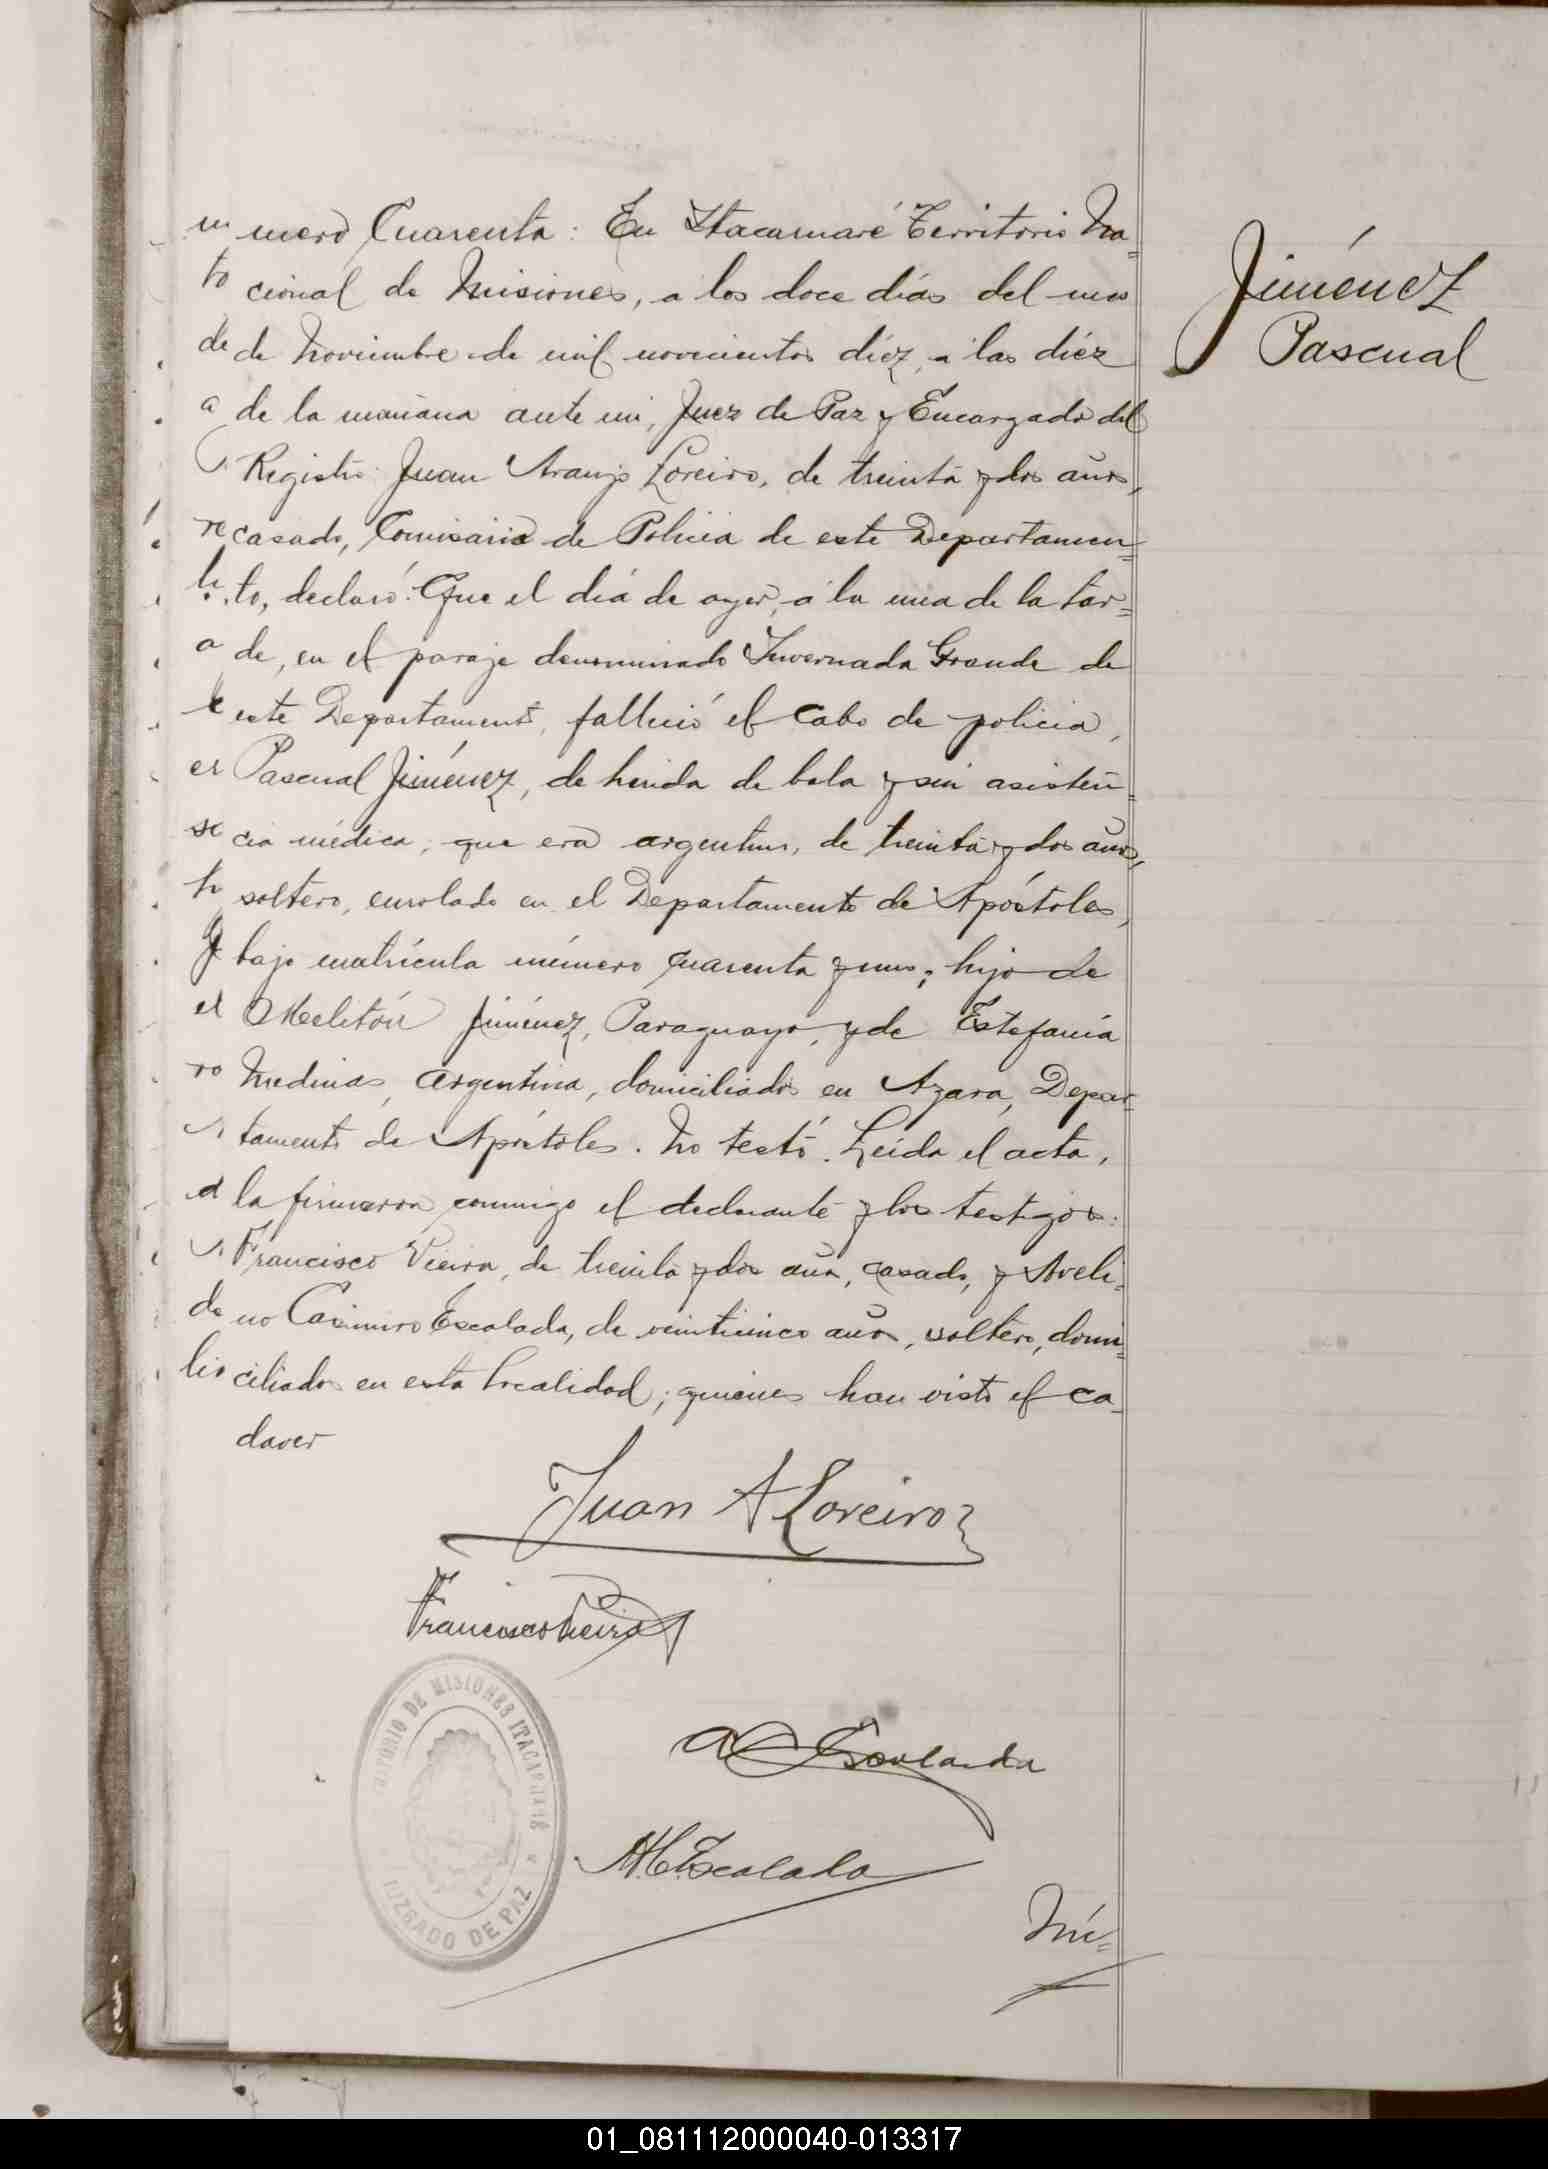 mero Cuarenta: En Itacaruaré Territorio Na=
cional de Misiones, a los doce dias del mes
de Noviembre de mil novecientos diéz, a las diéz
de la mañana ante mi, Juez de Paz y Encargado del
Registro: Juan Araujo Loreiro, de treinta y dos años,
casado, Comisario de Policia de este Departamen=
to, declaró: Que el dia de ayer, a la una de la tar=
de, en el paraje denominado Invernada Grande de
este Departamento, falleció el cabo de policia,
Pascual Jiménez, de herida de bala y sin asisten=
cia médica; que era argentino, de treinta y dos años,
soltero, enrolado en el Departamento de Apóstoles,
bajo matrícula número cuarenta y uno; hijo de
Melitón Jiménez, Paraguayo, y de Estefanía
Medina, Argentina, domiciliados en Azara, Depar=
tamento de Apóstoles. No testó. Leida el acta,
la firmaron conmigo el declarante y los testigos:
Francisco Vieira, de treinta y dos años, casado, y Aveli=
no Casimiro Escalada, de veinticinco años, soltero, domi=
ciliados en esta localidad; quienes han visto el ca=
daver
Juan A Loreiro
Francisco Vieira
A C Escalada
Escalada
Nú=
Jiménez
Pascual
TERRITORIO DE MISIONES ITACARUARÉ
JUZGADO DE PAZ
01_081112000040-013317